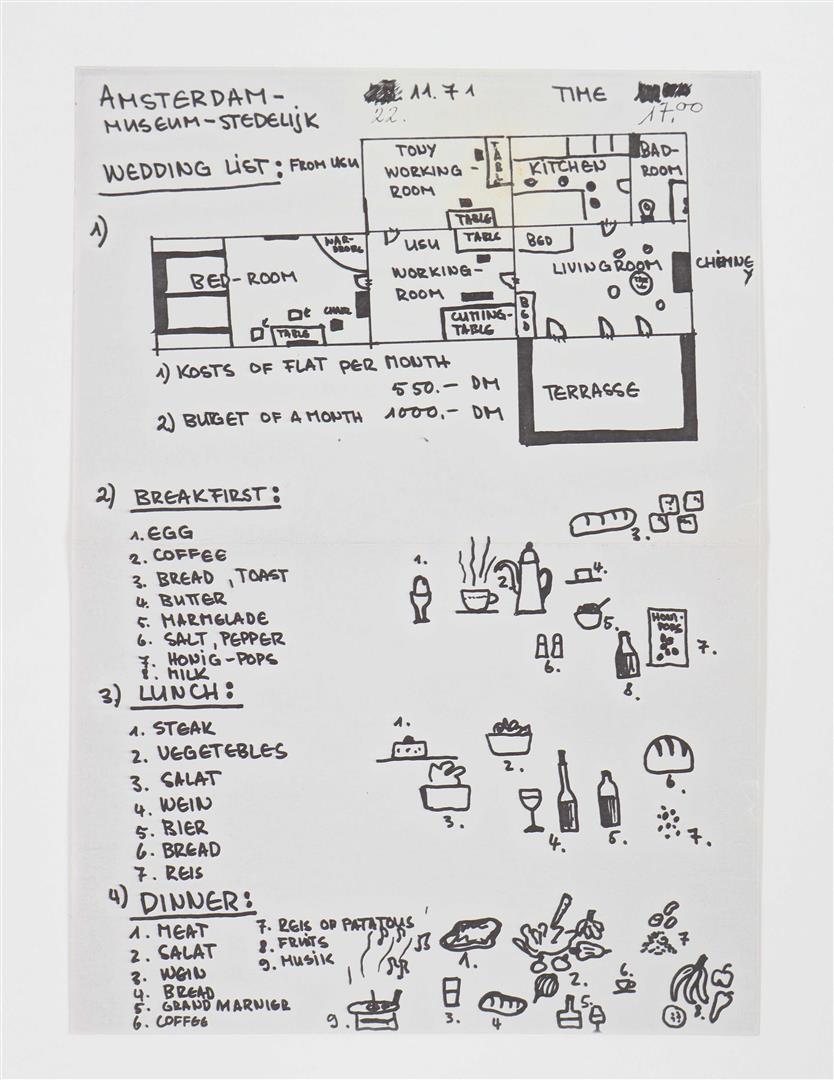 AMSTERDAM-
MUSEUM-STEDELIJK
11.71
22.
TIME
17.00
WEDDING LIST: FROM USU
1)
TONY
WORKING-
ROOM
TABLE
TABLE
KITCHEN
BAD-
ROOM
BED-ROOM
WAR-
DROBE
CHAIR
TABLE
USU
WORKING-
ROOM
TABLE
CUTTING-
TABLE
BED
BED
LIVINGROOM
CHEMINE
Y
TERRASSE
1) KOSTS OF FLAT PER MONTH
550.- DM
2) BUTGET OF A MONTH 1000.- DM
2) BREAKFIRST:
1. EGG
2. COFFEE
3. BREAD, TOAST
4. BUTTER
5. MARMELADE
6. SALT, PEPPER
7. HONIG-POPS
8. MILK
1.
2.
3.
4.
5.
6.
HONI-
POPS
7.
8.
3) LUNCH:
1. STEAK
2. VEGETEBLES
3. SALAT
4. WEIN
5. BIER
6. BREAD
7. REIS
1.
2.
3.
4.
5.
6.
7.
4) DINNER:
1. MEAT
2. SALAT
3. WEIN
4. BREAD
5. GRAND MARNIER
6. COFFEE
7. REIS OF PATATOUS
8. FRUITS
9. MUSIIK
1.
2.
3.
4
5.
6.
7
8.
9.